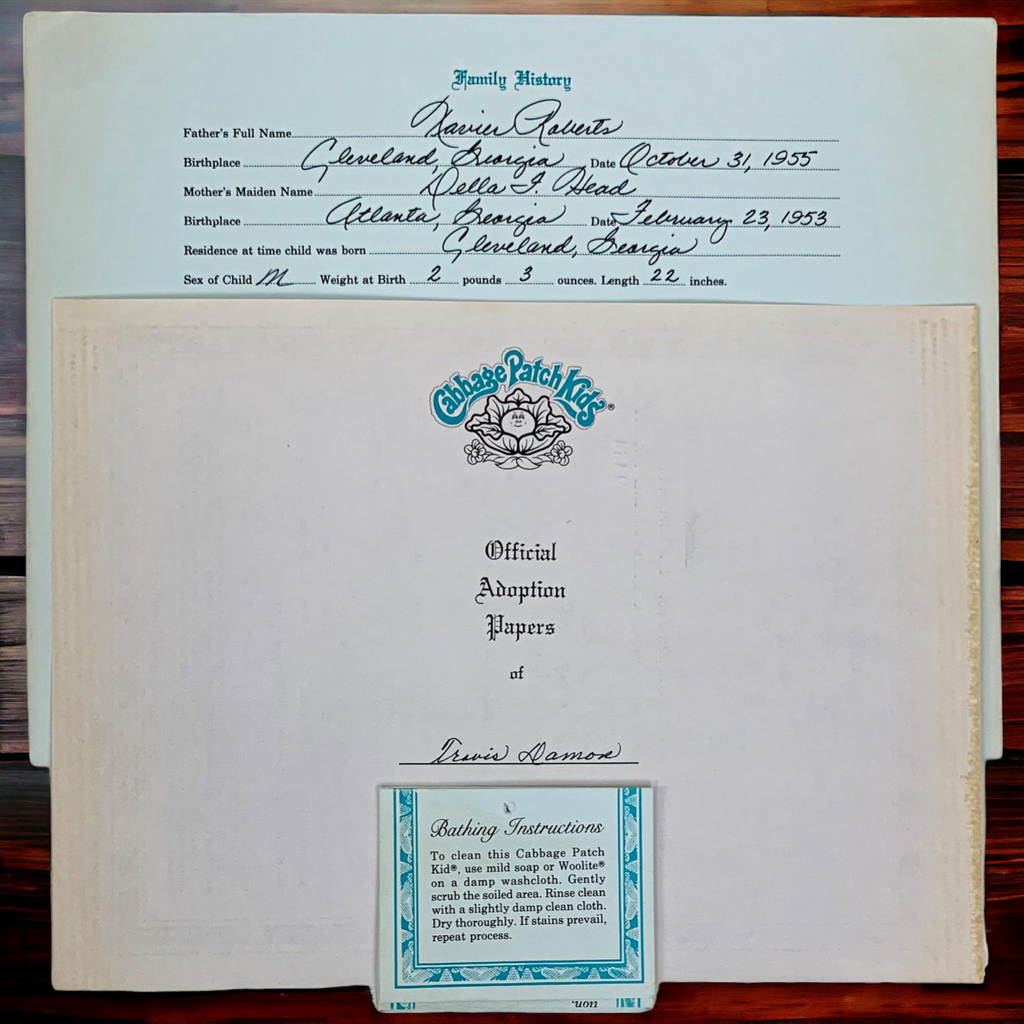 Family History
Father's Full Name Xavier Roberts
Birthplace Cleveland, Georgia Date October 31, 1955
Mother's Maiden Name Della I. Head
Birthplace Atlanta, Georgia Date February 23, 1953
Residence at time child was born Cleveland, Georgia
Sex of Child M Weight at Birth 2 pounds 3 ounces. Length 22 inches.
Cabbage Patch Kids®
Official
Adoption
Papers
of
Travis Damon
Bathing Instructions
To clean this Cabbage Patch
Kid®, use mild soap or Woolite®
on a damp washcloth. Gently
scrub the soiled area. Rinse clean
with a slightly damp clean cloth.
Dry thoroughly. If stains prevail,
repeat process.